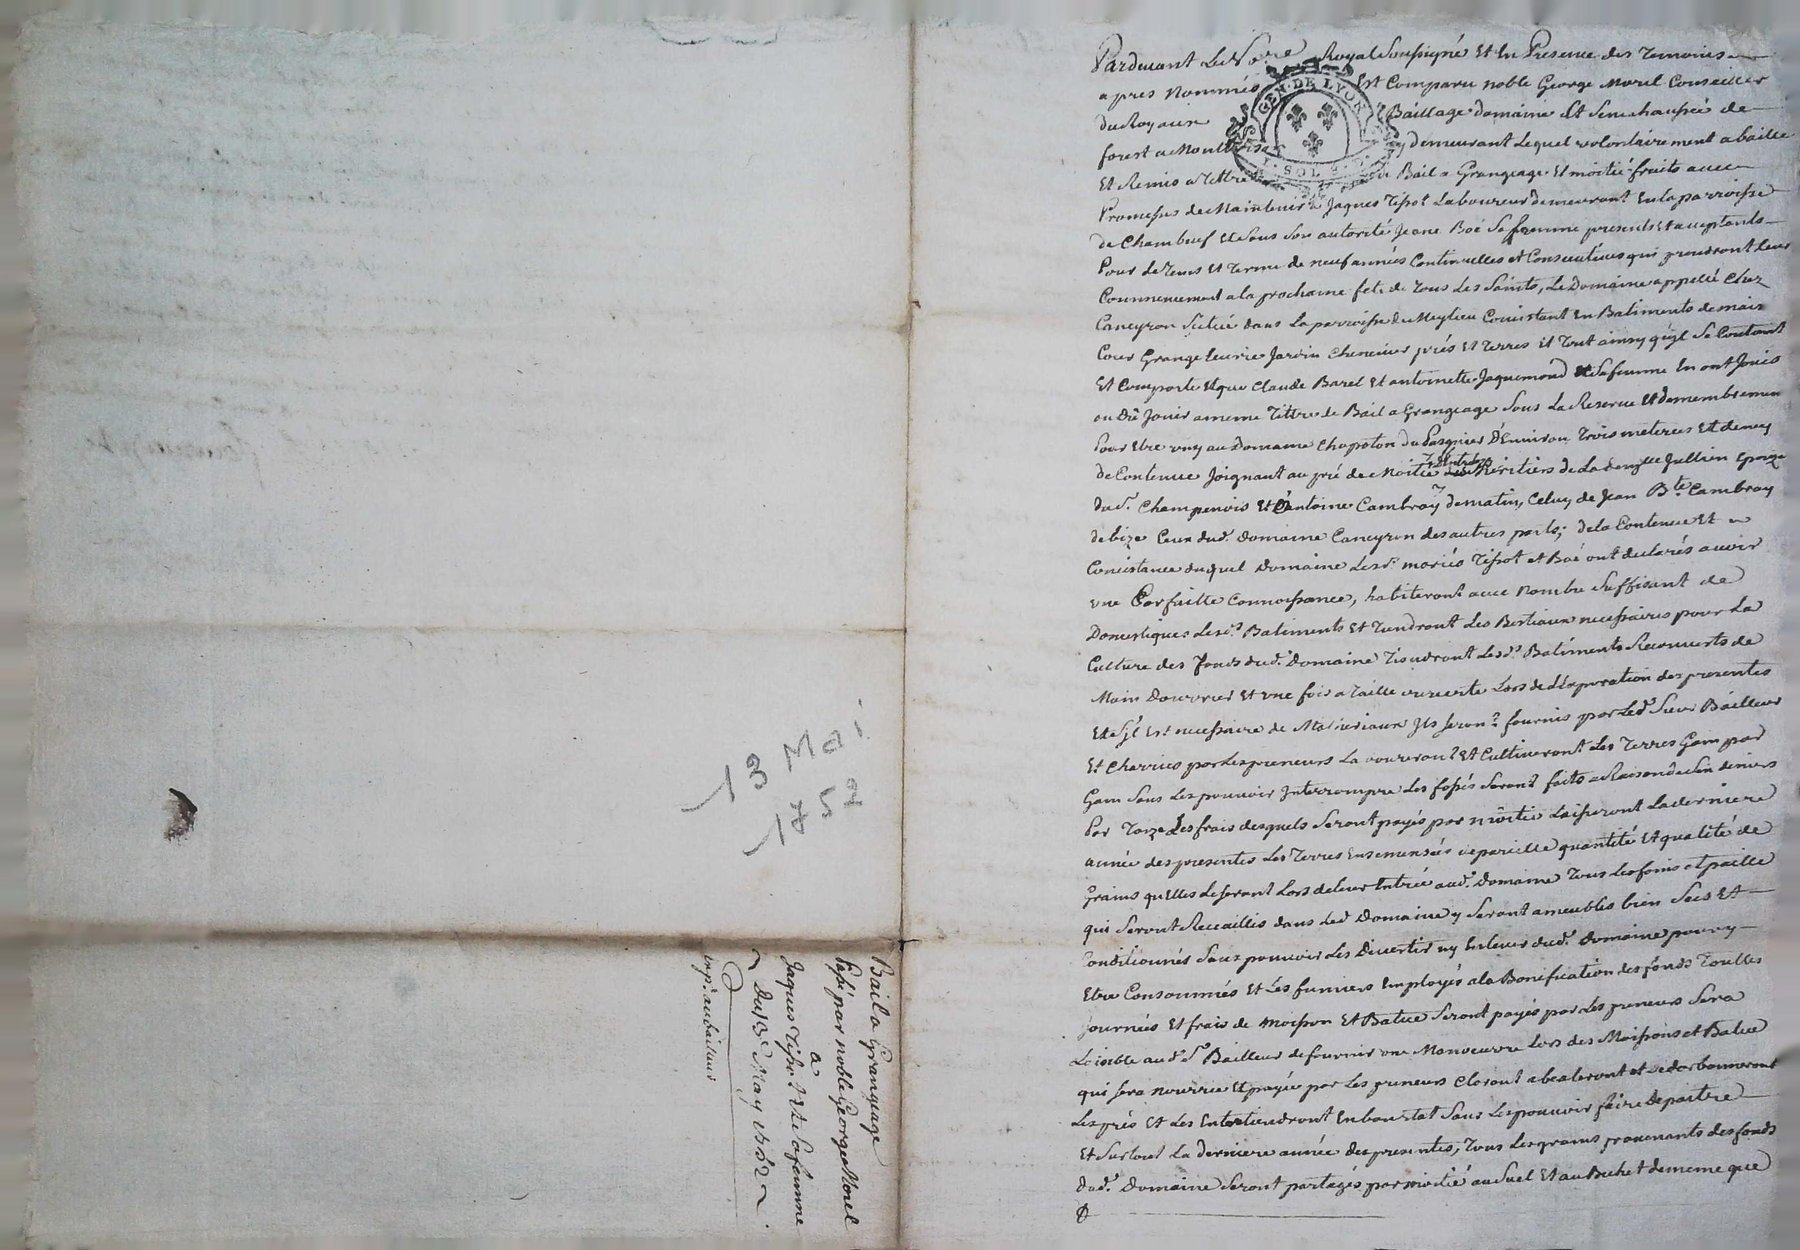 13 Mai
1752
Bail a Grangeage
Passé par noble George Morel
a
Jaques Tissot Et Sa femme
Du 13e. May 1752
exp. au bailleur
GEN. DE LYON
SOL
Pardevant Le No.re Royal Soussigné Et En Presence des Temoins
apres Nommés Est Comparu noble George Morel Conseiller
du Roy aux Baillage domaine Et Senechaussée de
forest a Montbrison y demeurant Lequel volontairement a baillé
Et Remis a tittre de Bail a Grangeage Et moitié fruits avec
Promesses de Maintenir a Jaques Tissot Laboureur demeurant En la parroisse
de Chambeuf Et Sous Son autorité Jeane Boé Sa femme presents Et acceptants
Pour Le Tems Et Terme de neuf années Continuelles et Consecutives qui prendront Leur
Commencement a la prochaine fete de Tous Les Saints, Le Domaine appellé Chez
Caneyron Scitué dans La parroisse de Meylieu Concistant En Batiments de mais
Cour Grange Jardin Chenevier prés Et Terres Et Tout ainsy qu'jl Se Contient
Et Comporte Et que Claude Barel Et antoinette Jaquemond Sa femme En ont Jouis
ou dû Jouir a meme Tittre de Bail a Grangeage Sous La Reserve Et demembremen
Pour Etre uny au Domaine Chapoton du Pasquier D'Environ Trois meterées Et demy
de Contenue Joignant au pré de Moitié Les heritiers de La demlle Jullien Epouze
du Sr. Champenois Et D'antoine Cambray de matin, Celuy de Jean Bte. Cambray
de bize Ceux dud. Domaine Caneyron des autres parts; de la Contenue Et
Concistance duquel Domaine Lesd. mariés Tissot et Boé ont declarés avoir
une Parfaitte Connoissance, habiteront avec Nombre Suffisant de
Domestiques Lesd. Batiments Et Tiendront Les Bestiaux necessaires pour La
Culture des fonds dud. Domaine Tiendront Lesd. Batiments Recouverts de
Main Douvrier Et une fois a Taille ouverte Lors de L'Expiration des presentes
Et S'jl Est necessaire de Materiaux Jls Seront fournis par Led. Sieur Bailleur
Et Charriés par Les preneurs Laboureront Et Cultiveront Les Terres Gain par
Gain Sans Les pouvoir Jnterrompre Les fossés Seront faits a Raison de Six deniers
Par Toize Les frais desquels Seront payés par moitié Laisseront La derniere
année des presentes Les Terres Ensemensées de pareille quantité Et qualité de
Grains qu'Elles Le Seront Lors de leur Entrée aud. Domaine Tous Les foins et paille
qui Seront Recueillis dans Led. Domaine y Seront ameublés bien Secs Et
Conditionnés Sans pouvoir Les Divertir ny Enlever dud. Domaine pour y
Etre Consommés Et Les fumiers Employés a la Bonification des fonds Touttes
Journées Et frais de moisson Et Batue Seront payés par Les preneurs Sera
Loisible aud. Sr. Bailleur de fournir une Manoeuvre Lors des Moissons et Batue
qui Sera nourrie Et payée par Les preneurs Cloront abealeront et
Les prés Et Les Entretiendront En bon Etat Sans Les pouvoir faire depaitre
Et Surtout La derniere année des presentes, Tous Les grains provenants des fonds
dud. Domaine Seront partagés par moitié au Suel Et au Bichet de meme que